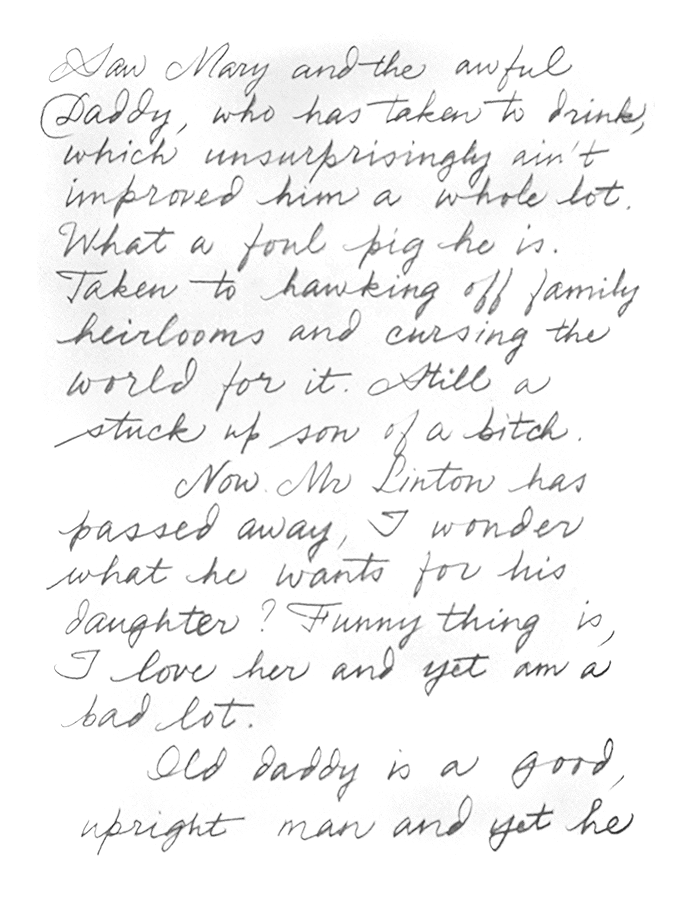 Saw Mary and the awful
Daddy, who has taken to drink,
which unsurprisingly ain't
improved him a whole lot.
What a foul pig he is.
Taken to hawking off family
heirlooms and cursing the
world for it. Still a
stuck up son of a bitch.
Now Mr Linton has
passed away, I wonder
what he wants for his
daughter? Funny thing is,
I love her and yet am a
bad lot.
Old daddy is a good,
upright man and yet he